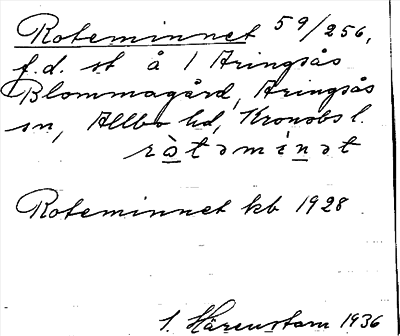 Roteminnet 59/256,
f.d. st å 1 Aringsås
Blommagård, Aringsås
sn, Allbo hd, Kronobs l.
ròtəmìnət
Roteminnet kb 1928
I. Härenstam 1936